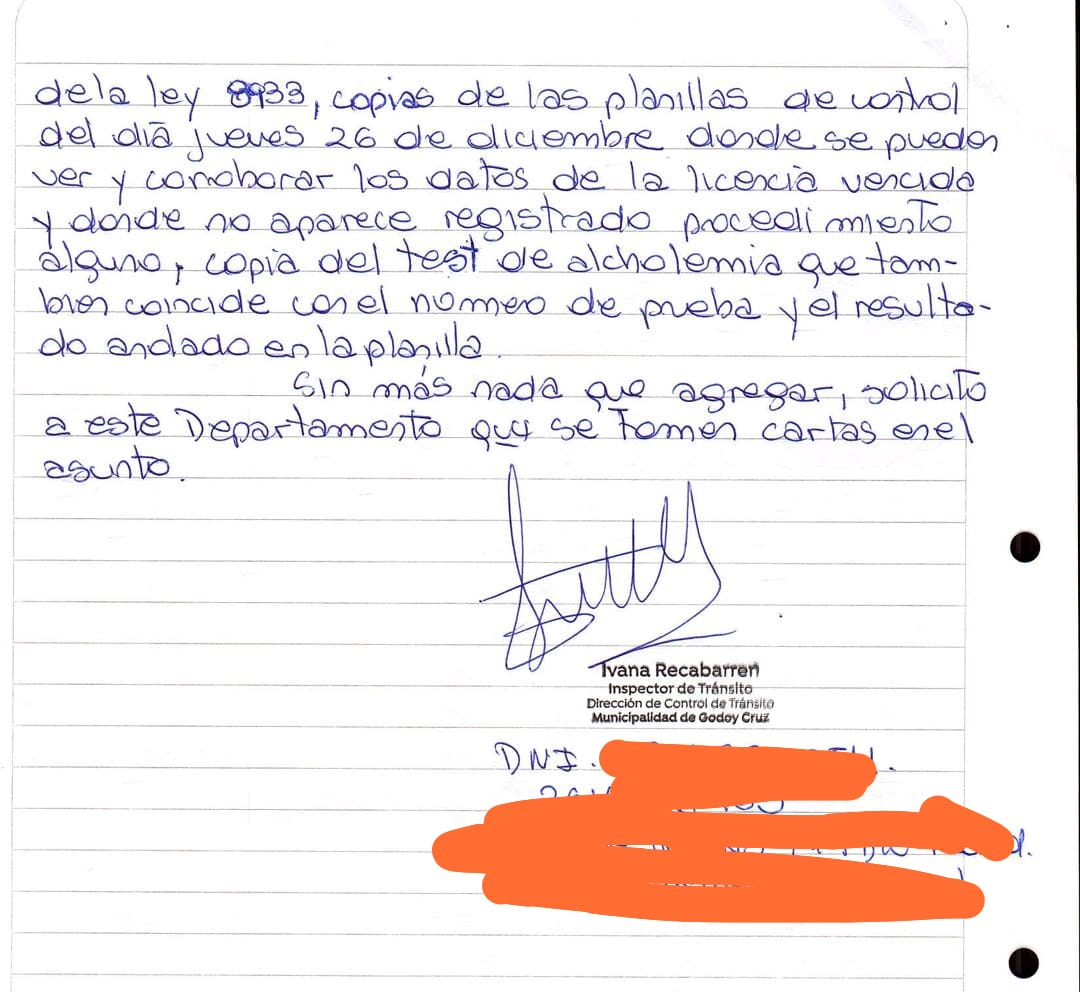 dela ley 8933, copias de las planillas de control
del día jueves 26 de diciembre donde se pueden
ver y corroborar los datos de la licencia vencida
y donde no aparece registrado procedimiento
alguno, copia del test de alcholemia que tam-
bien coincide con el número de prueba y el resulta-
do andado en la planilla.
Sin más nada que agregar, solicito
a este Departamento que se tomen cartas en el
asunto.
Ivana Recabarren
Inspector de Tránsito
Dirección de Control de Tránsito
Municipalidad de Godoy Cruz
DNI.